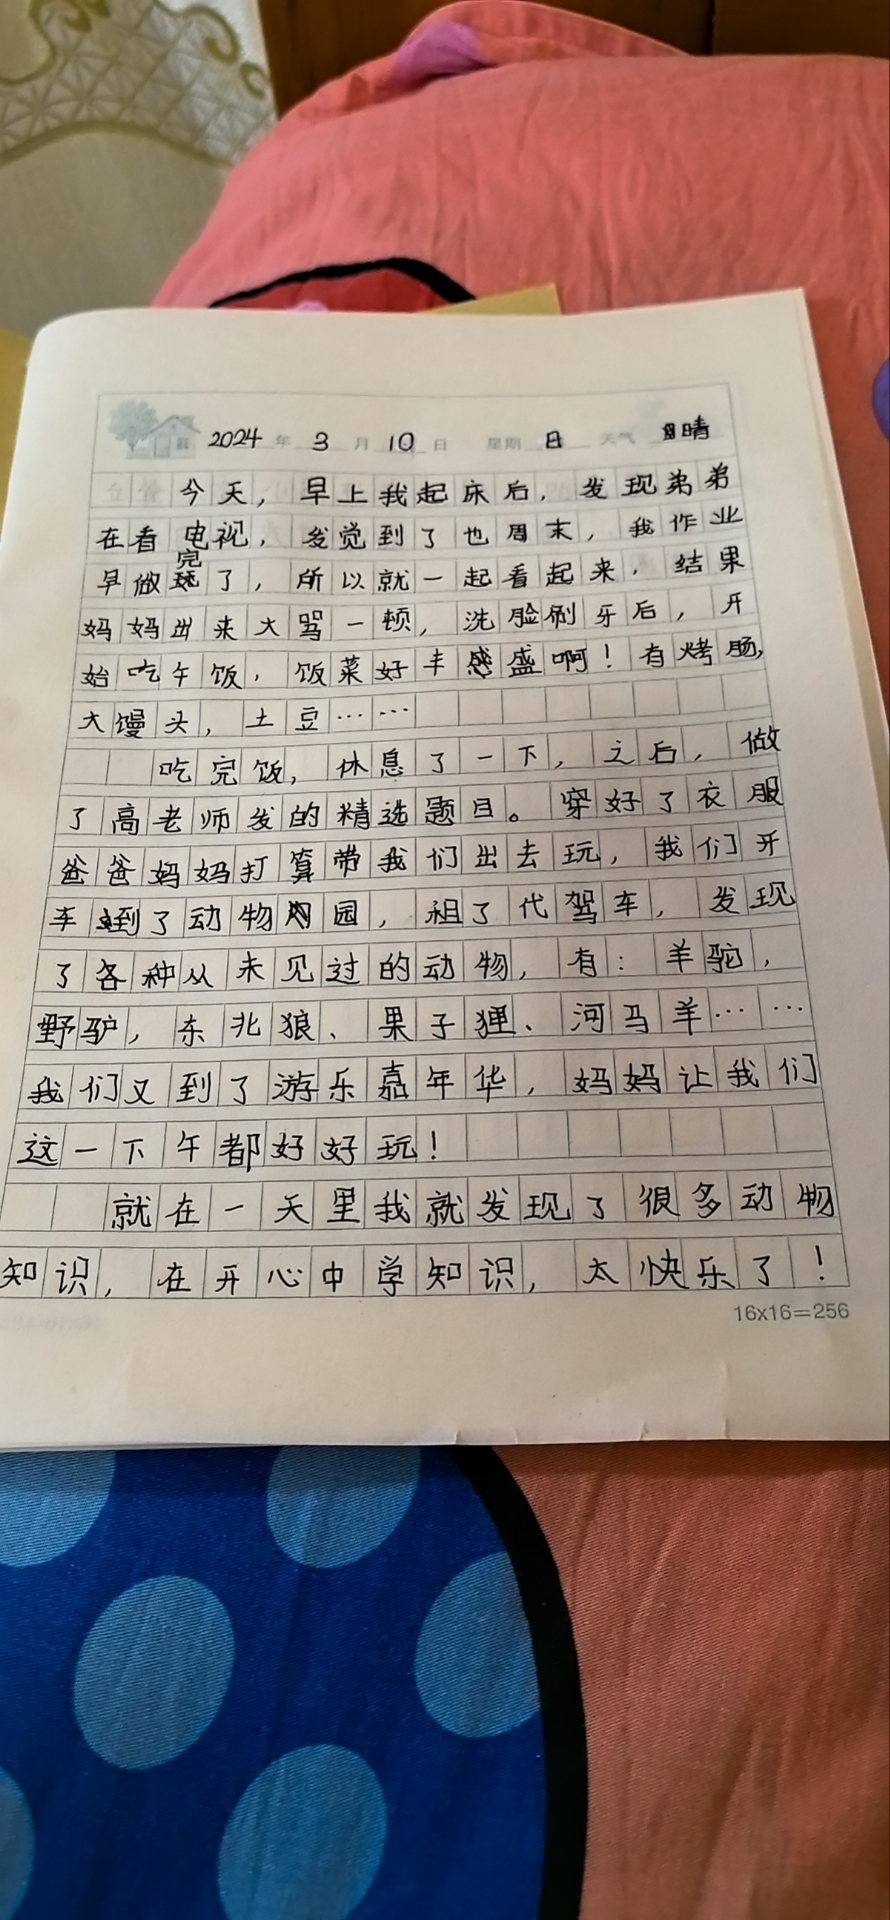 2024年 3月 10日 星期 日 天气 晴
今天，早上我起床后，发现弟弟
在看电视，发觉到了也周末，我作业
早做完了，所以就一起看起来，结果
妈妈出来大骂一顿，洗脸刷牙后，开
始吃午饭，饭菜好丰盛啊！有烤肠，
大馒头，土豆……
吃完饭，休息了一下，之后，做
了高老师发的精选题目。穿好了衣服
爸爸妈妈打算带我们出去玩，我们开
车到了动物园，租了代驾车，发现
了各种从未见过的动物，有：羊驼，
野驴，东北狼、果子狸、河马羊……
我们又到了游乐嘉年华，妈妈让我们
这一下午都好好玩！
就在一天里我就发现了很多动物
知识，在开心中学知识，太快乐了！
16x16=256